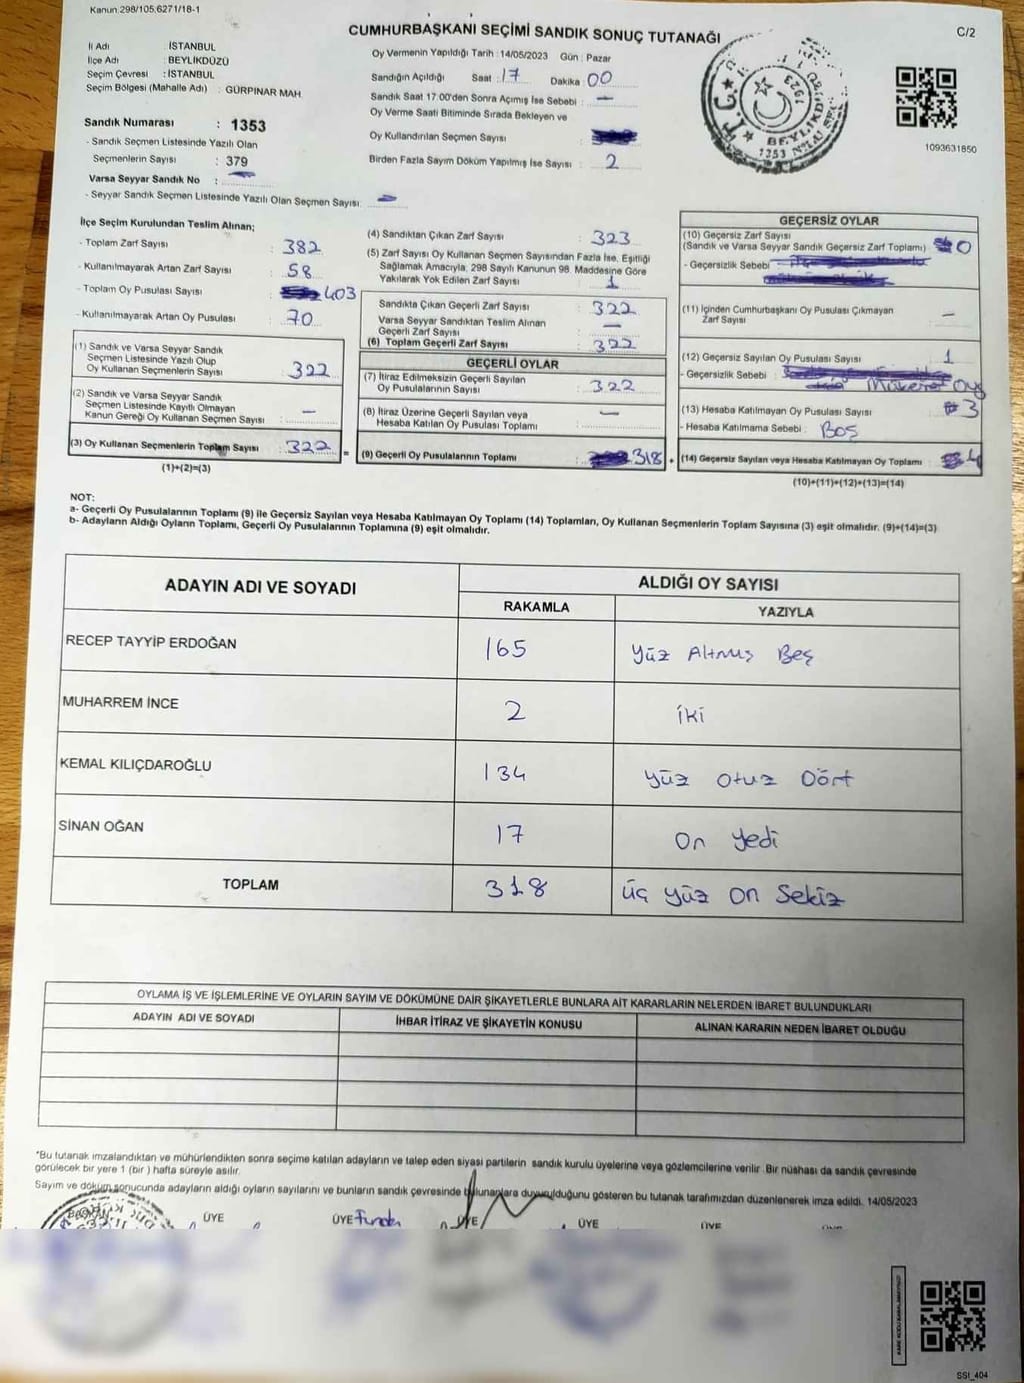 Kanun.298/105,6271/18-1
CUMHURBAŞKANI SEÇİMİ SANDIK SONUÇ TUTANAĞI
C/2
İl Adı : İSTANBUL
İlçe Adı : BEYLİKDÜZÜ
Seçim Çevresi : İSTANBUL
Seçim Bölgesi (Mahalle Adı) : GÜRPINAR MAH.
Sandık Numarası : 1353
- Sandık Seçmen Listesinde Yazılı Olan
Seçmenlerin Sayısı : 379
Varsa Seyyar Sandık No : -
- Seyyar Sandık Seçmen Listesinde Yazılı Olan Seçmen Sayısı: -
Oy Vermenin Yapıldığı Tarih : 14/05/2023 Gün : Pazar
Sandığın Açıldığı Saat : 17 Dakika : 00
Sandık Saat 17:00'den Sonra Açımış İse Sebebi : -
Oy Verme Saati Bitiminde Sırada Bekleyen ve
Oy Kullandırılan Seçmen Sayısı :
Birden Fazla Sayım Döküm Yapılmış İse Sayısı : 2
T.C.
1923
BEYLİKDÜZÜ
1353 NOLU
1093631850
İlçe Seçim Kurulundan Teslim Alınan;
- Toplam Zarf Sayısı : 382
- Kullanılmayarak Artan Zarf Sayısı : 58
- Toplam Oy Pusulası Sayısı : 403
- Kullanılmayarak Artan Oy Pusulası : 70
(1) Sandık ve Varsa Seyyar Sandık
Seçmen Listesinde Yazılı Olup
Oy Kullanan Seçmenlerin Sayısı : 322
(2) Sandık ve Varsa Seyyar Sandık
Seçmen Listesinde Kayıtlı Olmayan
Kanun Gereği Oy Kullanan Seçmen Sayısı : -
(3) Oy Kullanan Seçmenlerin Toplam Sayısı : 322
(1)+(2)=(3)
(4) Sandıktan Çıkan Zarf Sayısı : 323
(5) Zarf Sayısı Oy Kullanan Seçmen Sayısından Fazla İse, Eşitliği
Sağlamak Amacıyla, 298 Sayılı Kanunun 98. Maddesine Göre
Yakılarak Yok Edilen Zarf Sayısı : 1
Sandıkta Çıkan Geçerli Zarf Sayısı : 322
Varsa Seyyar Sandıktan Teslim Alınan
Geçerli Zarf Sayısı : -
(6) Toplam Geçerli Zarf Sayısı : 322
GEÇERLİ OYLAR
(7) İtiraz Edilmeksizin Geçerli Sayılan
Oy Pusulalarının Sayısı : 322
(8) İtiraz Üzerine Geçerli Sayılan veya
Hesaba Katılan Oy Pusulası Toplamı : -
= (9) Geçerli Oy Pusulalarının Toplamı : 318 +
GEÇERSİZ OYLAR
(10) Geçersiz Zarf Sayısı
(Sandık ve Varsa Seyyar Sandık Geçersiz Zarf Toplamı) : 0
- Geçersizlik Sebebi :
(11) İçinden Cumhurbaşkanı Oy Pusulası Çıkmayan
Zarf Sayısı : -
(12) Geçersiz Sayılan Oy Pusulası Sayısı : 1
- Geçersizlik Sebebi : Mükerrer Oy
(13) Hesaba Katılmayan Oy Pusulası Sayısı : 3
- Hesaba Katılmama Sebebi : Boş
(14) Geçersiz Sayılan veya Hesaba Katılmayan Oy Toplamı : 4
(10)+(11)+(12)+(13)=(14)
NOT:
a- Geçerli Oy Pusulalarının Toplamı (9) ile Geçersiz Sayılan veya Hesaba Katılmayan Oy Toplamı (14) Toplamları, Oy Kullanan Seçmenlerin Toplam Sayısına (3) eşit olmalıdır. (9)+(14)=(3)
b- Adayların Aldığı Oyların Toplamı, Geçerli Oy Pusulalarının Toplamına (9) eşit olmalıdır.
ADAYIN ADI VE SOYADI
ALDIĞI OY SAYISI
RAKAMLA YAZIYLA
RECEP TAYYİP ERDOĞAN 165 Yüz Altmış Beş
MUHARREM İNCE 2 İki
KEMAL KILIÇDAROĞLU 134 Yüz Otuz Dört
SİNAN OĞAN 17 On Yedi
TOPLAM 318 Üç Yüz On Sekiz
OYLAMA İŞ VE İŞLEMLERİNE VE OYLARIN SAYIM VE DÖKÜMÜNE DAİR ŞİKAYETLERLE BUNLARA AİT KARARLARIN NELERDEN İBARET BULUNDUKLARI
ADAYIN ADI VE SOYADI İHBAR İTİRAZ VE ŞİKAYETİN KONUSU ALINAN KARARIN NEDEN İBARET OLDUĞU
*Bu tutanak imzalandıktan ve mühürlendikten sonra seçime katılan adayların ve talep eden siyasi partilerin sandık kurulu üyelerine veya gözlemcilerine verilir. Bir nüshası da sandık çevresinde
görülecek bir yere 1 (bir ) hafta süreyle asılır.
Sayım ve döküm sonucunda adayların aldığı oyların sayılarını ve bunların sandık çevresinde bulunanlara duyurulduğunu gösteren bu tutanak tarafımızdan düzenlenerek imza edildi. 14/05/2023
ÜYE ÜYE ÜYE ÜYE ÜYE
SSI_404